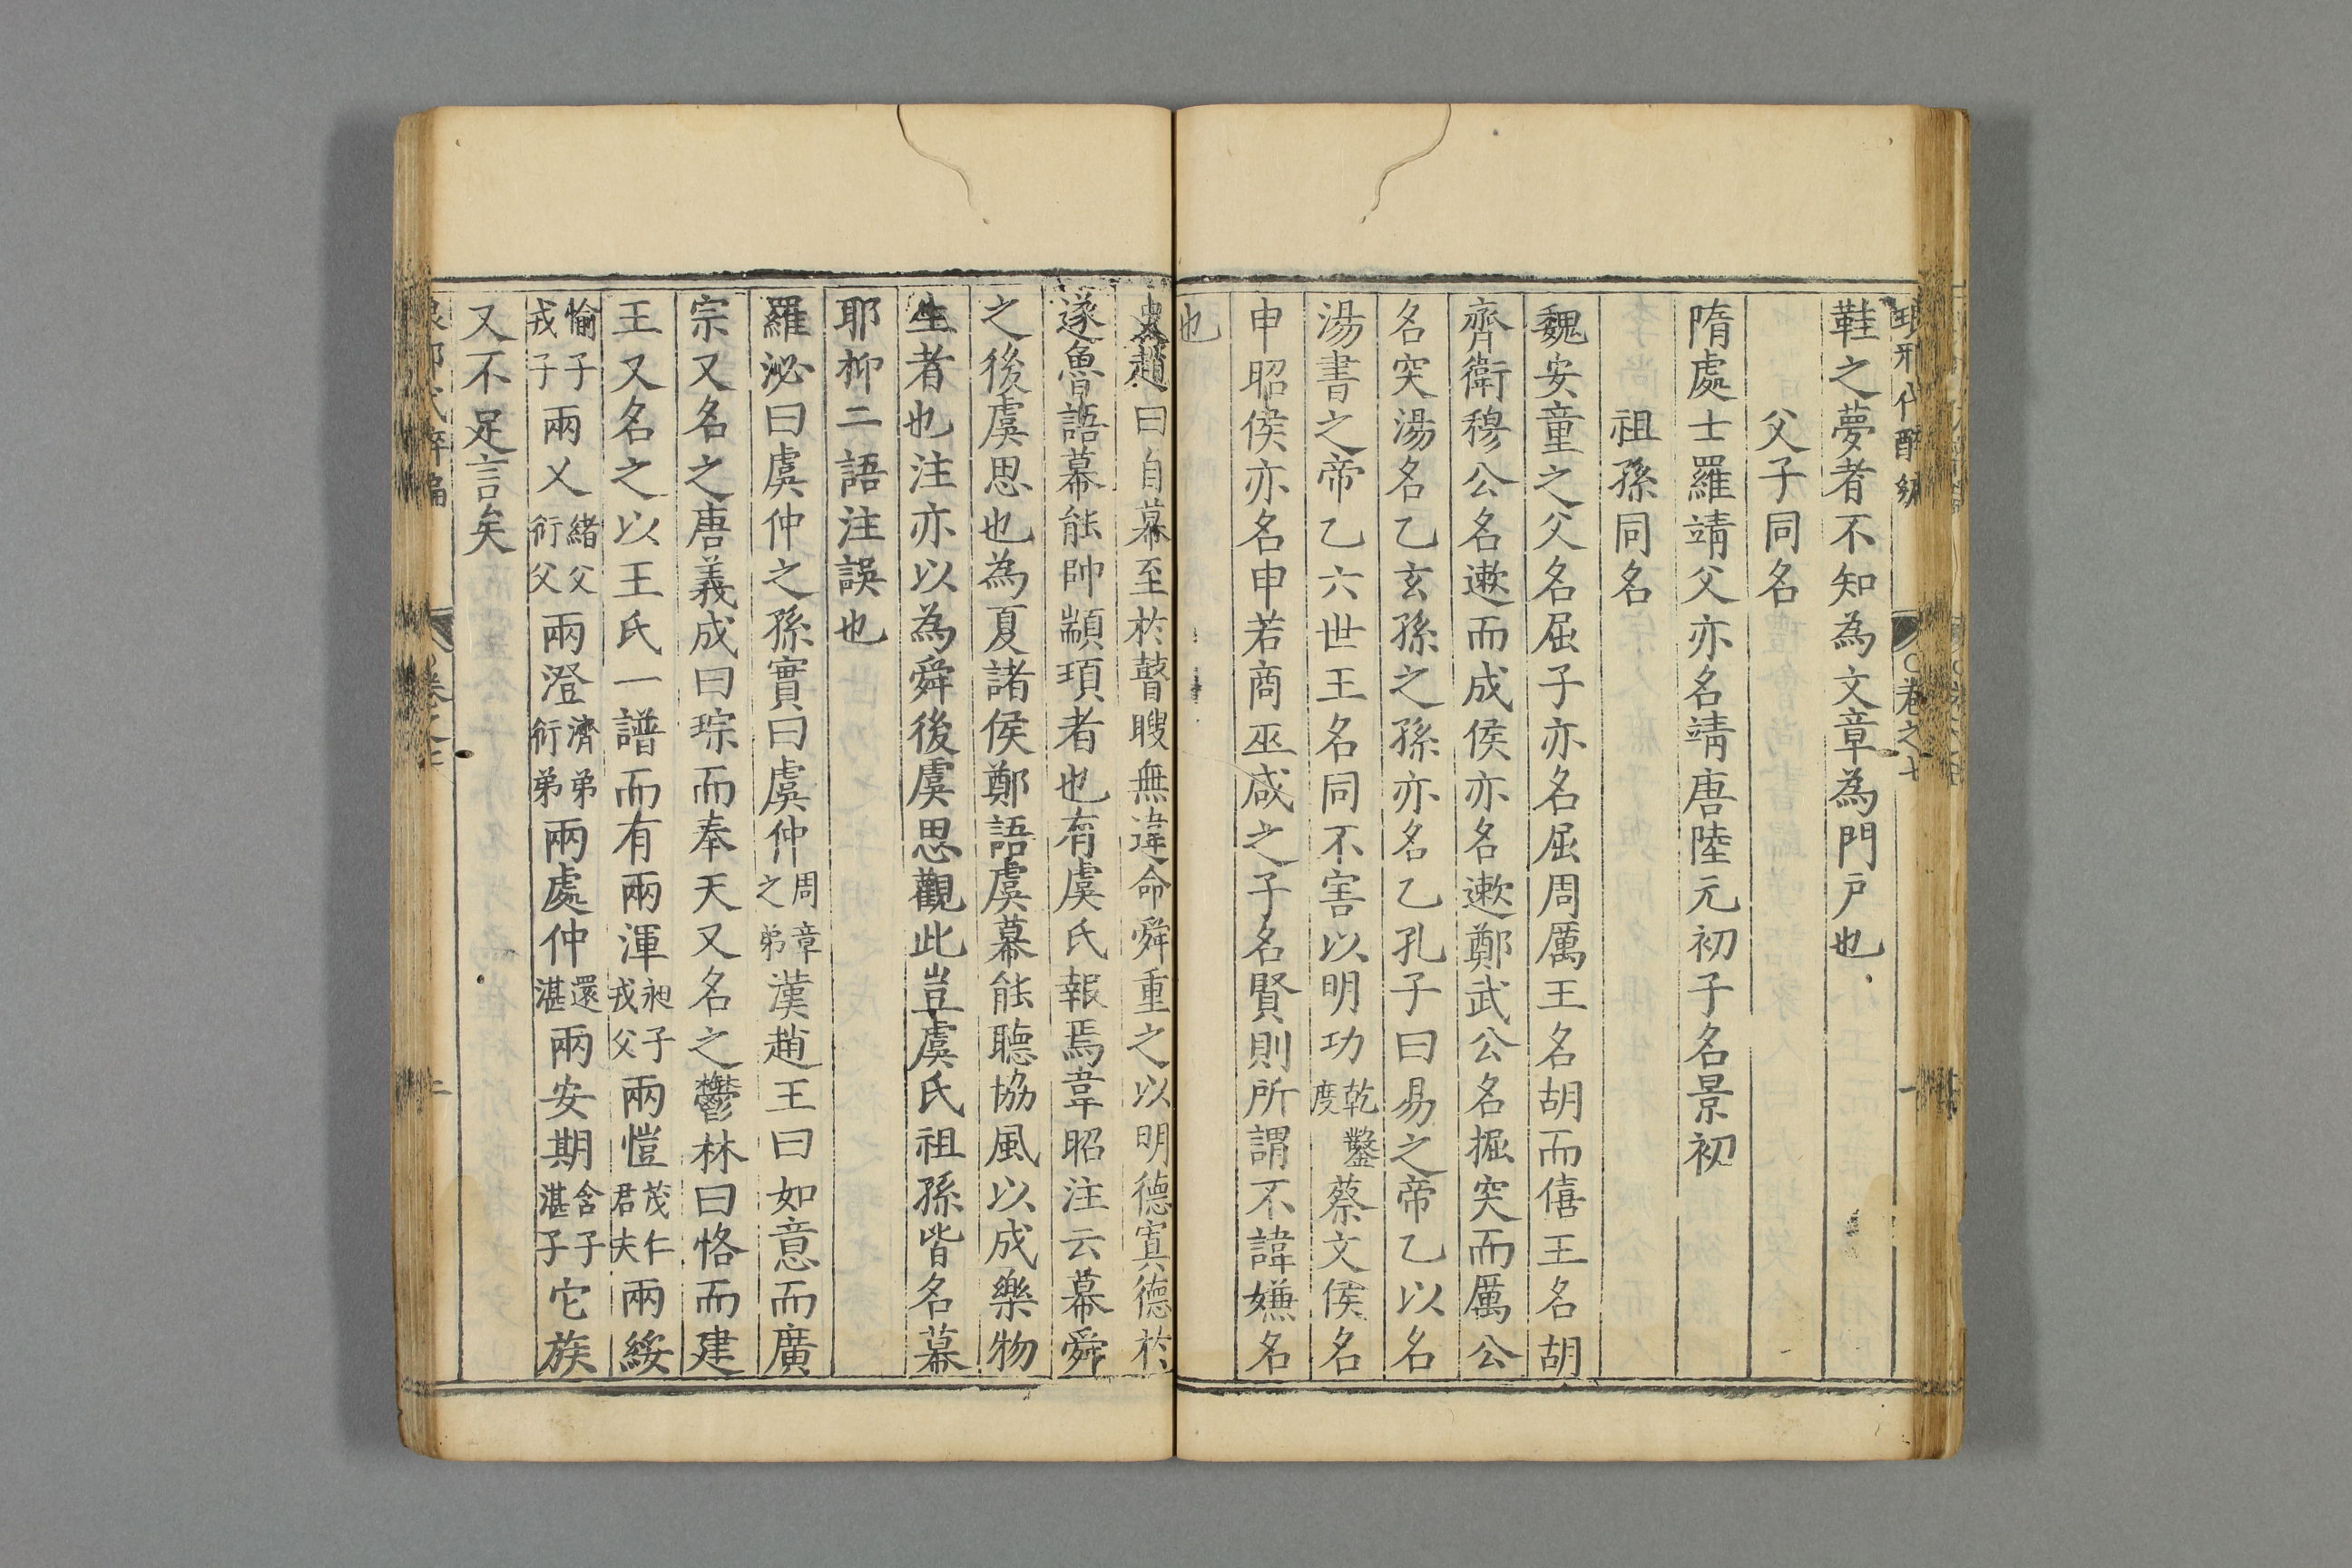 瑯邪代醉編 卷之七 一
鞋之夢者不知為文章為門戶也
父子同名
隋處士羅靖父亦名靖唐陸元初子名景初
祖孫同名
魏安童之父名屈子亦名屈周厲王名胡而僖王名胡
齊衛穆公名遬而成侯亦名遬鄭武公名掘突而厲公
名突湯名乙玄孫之孫亦名乙孔子曰易之帝乙以名
湯書之帝乙六世王名同不害以明功乾鑿度蔡文侯名
申昭侯亦名申若商巫咸之子名賢則所謂不諱嫌名
也
史趙曰自幕至於瞽瞍無違命舜重之以明德寘德於
遂魯語幕能帥顓頊者也有虞氏報焉韋昭注云幕舜
之後虞思也為夏諸侯鄭語虞幕能聽協風以成樂物
生者也注亦以為舜後虞思觀此豈虞氏祖孫皆名幕
耶抑二語注誤也
羅泌曰虞仲之孫實曰虞仲周章之弟漢趙王曰如意而廣
宗又名之唐義成曰琮而奉天又名之鬱林曰恪而建
王又名之以王氏一譜而有兩渾昶子戎父兩愷茂仁君夫兩綏
愉子戎子兩乂緒父衍父兩澄濟弟衍弟兩處仲還湛兩安期含子湛子它族
又不足言矣
卷之七